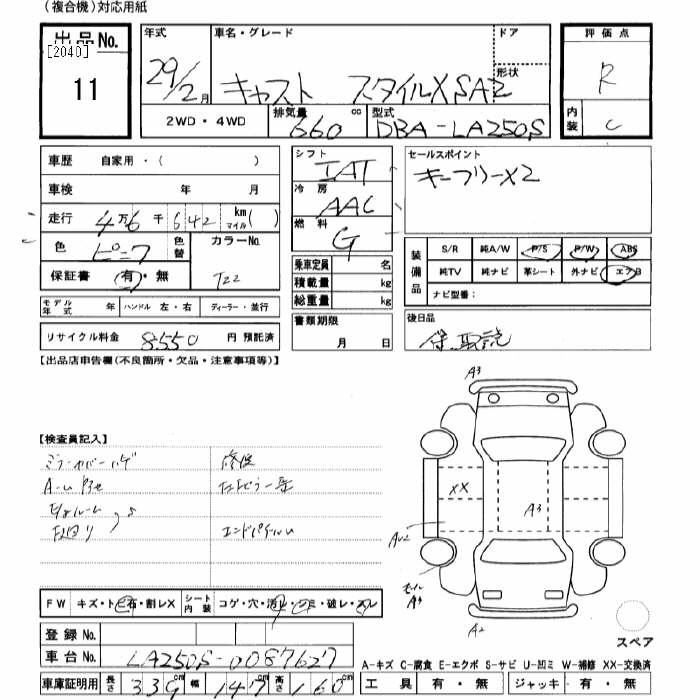 (複合機)対応用紙
出品No.
[2040]
11
年式
29/2月
車名・グレード
キャスト スタイルX,SA2
ドア
形状
評価点
R
内装
C
2WD・4WD
排気量
660 cc
型式
DBA-LA250S
車歴 自家用・( )
車検 年 月
走行 4万6千642 km マイル( )
色 ピンク 色替
カラーNo.
T22
保証書 有・無
モデル年式 年 ハンドル 左・右 ディーラー・並行
リサイクル料金 8550 円 預託済
シフト
IAT
冷房
AAC
燃料
G
乗車定員 名
積載量 kg
総重量 kg
書類期限
月 日
セールスポイント
キーフリー×2
装備品
S/R 純A/W P/S P/W ABS
純TV 純ナビ 革シート 外ナビ エアB
ナビ型番:
後日品
保 取説
【出品店申告欄(不良箇所・欠品・注意事項等)】
【検査員記入】
ミラーカバーハゲ
修復
エンドパネル
A3
XX
A3
AU2
A3
A2
FW キズ・ト・石・割レX
シート内装 コゲ・穴・汚レ・シミ・破レ・スレ
登録No.
車台No. LA250S-0087627
車庫証明用 長さ 339 cm 幅 147 cm 高さ 160 cm
スペア
A-キズ C-腐食 E-エクボ S-サビ U-凹ミ W-補修 XX-交換済
工具 有・無 ジャッキ 有・無